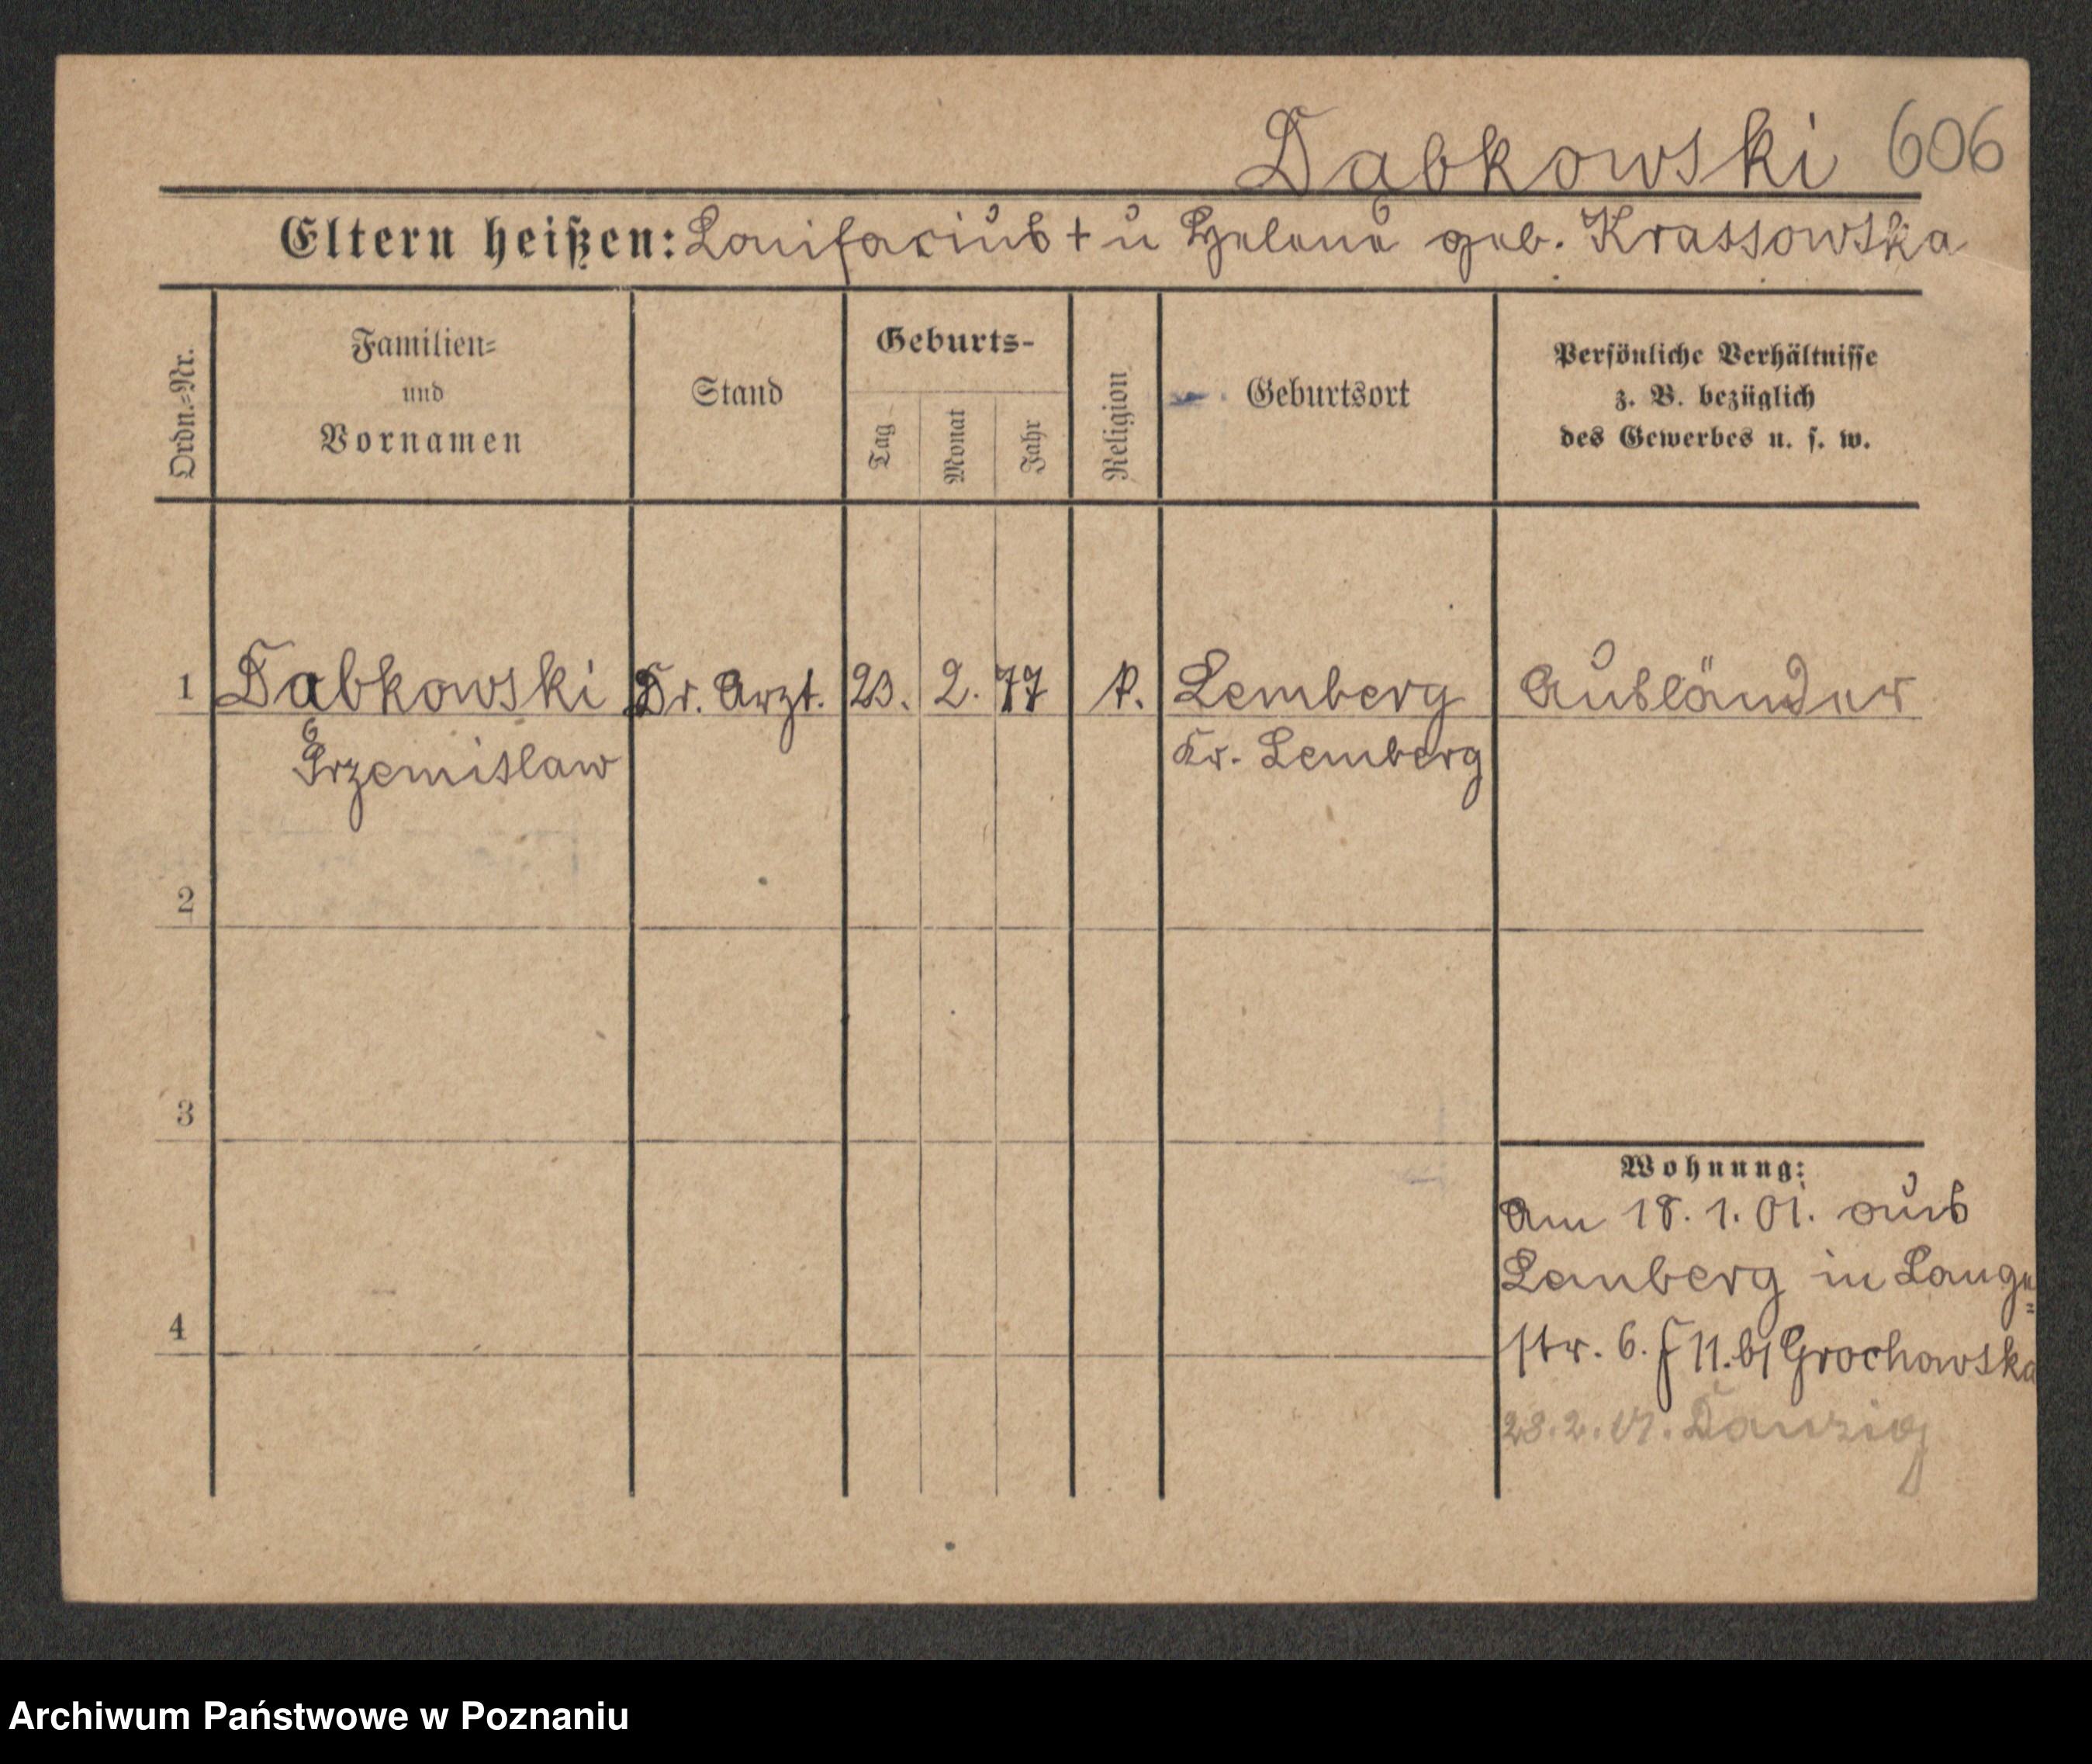 Dabkowski 606
Eltern heißen: Bonifacius + u Helena geb. Krassowska
Ordn.=Nr.
Familien=
und
Vornamen
Stand
Geburts-
Tag
Monat
Jahr
Religion
Geburtsort
Persönliche Verhältnisse
z. B. bezüglich
des Gewerbes u. s. w.
1 Dabkowski Dr. Arzt. 23. 2. 77 k. Lemberg Ausländer
Przemislaw Kr. Lemberg
2
3
Wohnung:
Am 18. 1. 01. aus
Lemberg in Lange=
4
str. 6. 11. b/ Grochowska
Danzig
Archiwum Państwowe w Poznaniu